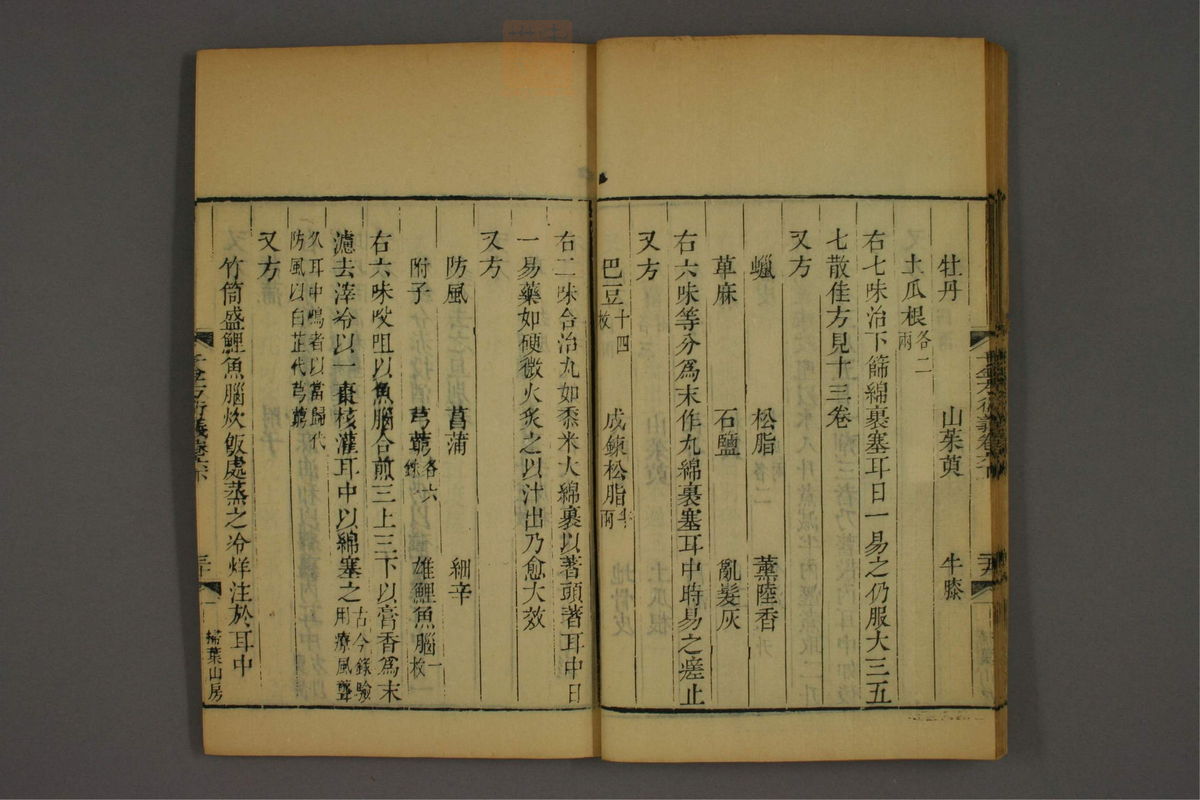 牡丹　山茱萸　牛膝
土瓜根各二兩
右七味治下篩綿裹塞耳日一易之仍服大三五
七散佳方見十三卷
又方
蠟　松脂　薰陸香
萆麻　石鹽　亂髮灰
右六味等分爲末作丸綿裹塞耳中時易之瘥止
又方
巴豆十四枚　成鍊松脂半兩
右二味合治丸如黍米大綿裹以著頭著耳中日
一易藥如硬微火炙之以汁出乃愈大效
又方
防風　菖蒲　細辛
附子　芎藭各六銖　雄鯉魚腦一枚
右六味㕮咀以魚腦合煎三上三下以膏香爲末
濾去滓冷以一棗核灌耳中以綿塞之古今錄驗用療風聾
久耳中鳴者以當歸代
防風以白芷代芎藭
又方
竹筒盛鯉魚腦炊飯處蒸之冷烊注於耳中
千金方衍義卷六下
掃葉山房